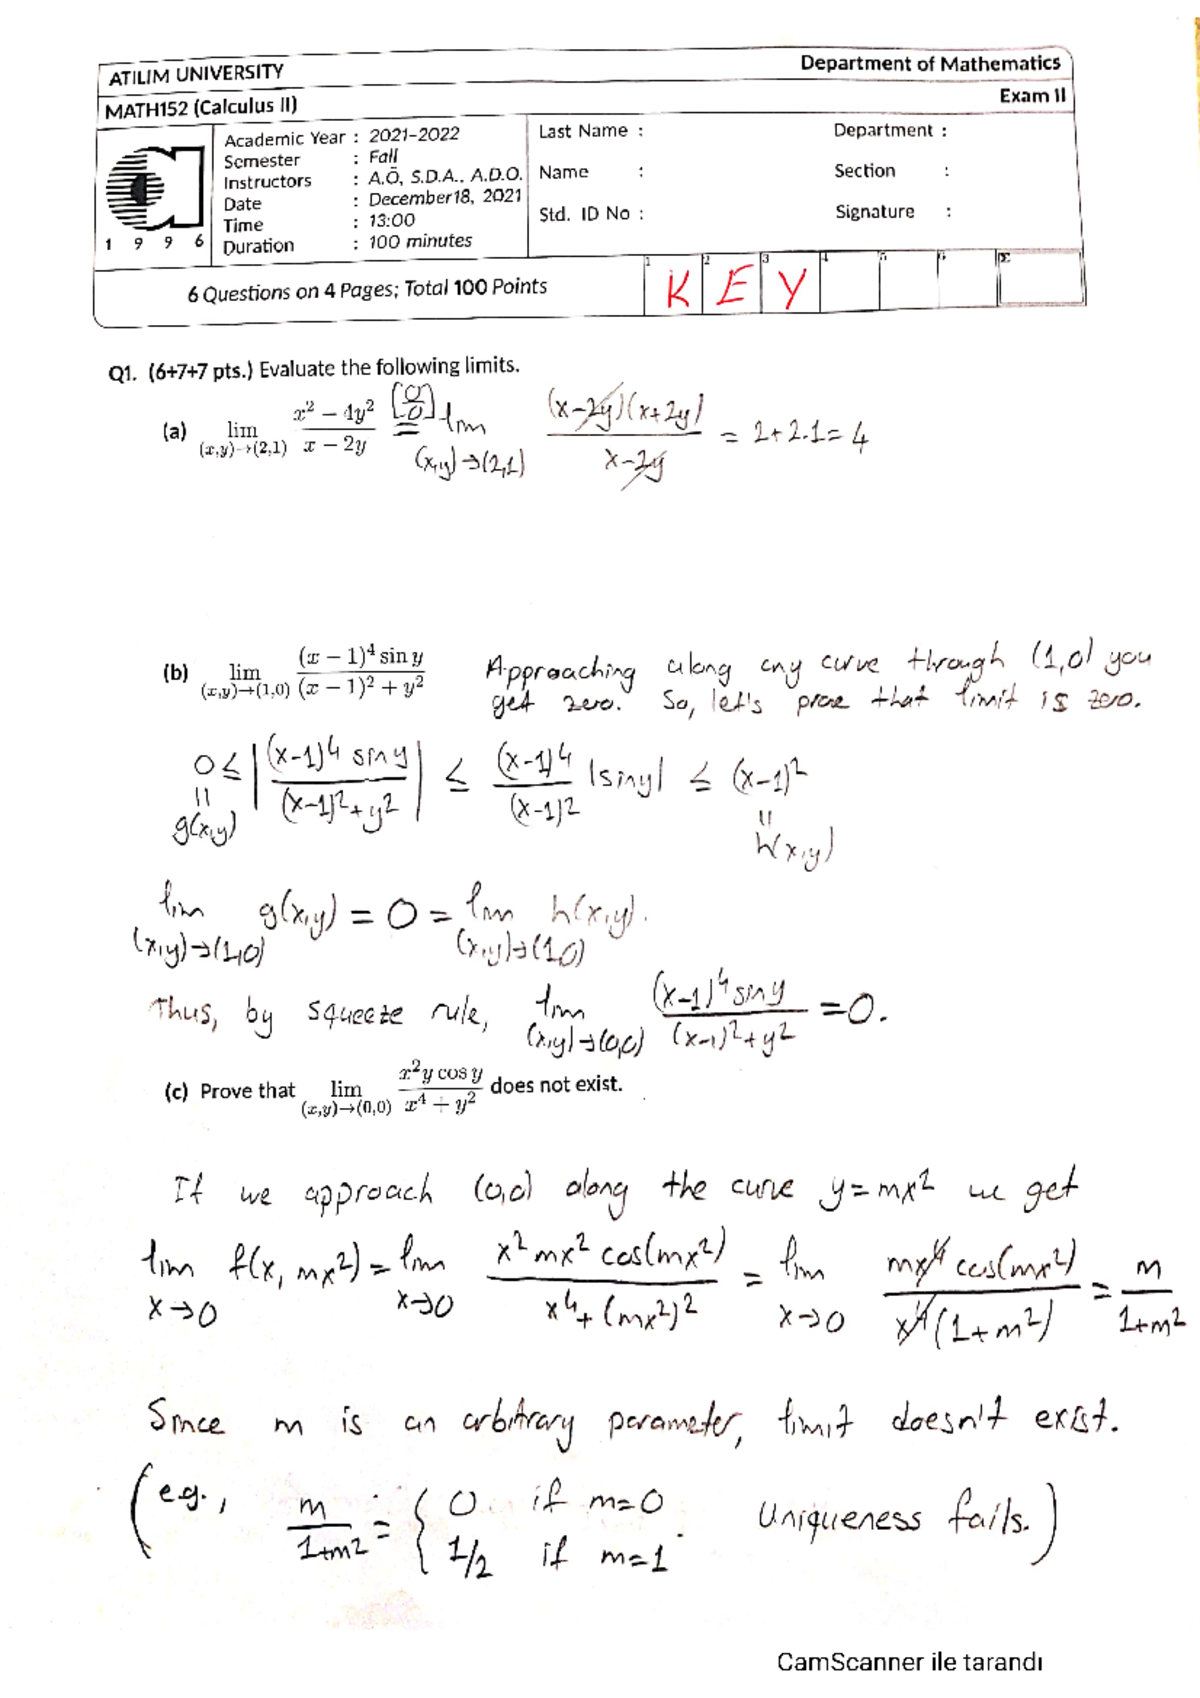 ATILIM UNIVERSITY Department of Mathematics
MATH152 (Calculus II) Exam II
1 9 9 6
Academic Year : 2021-2022
Semester : Fall
Instructors : A.Ö, S.D.A., A.D.O.
Date : December18, 2021
Time : 13:00
Duration : 100 minutes
Last Name :
Name :
Std. ID No :
Department :
Section :
Signature :
6 Questions on 4 Pages; Total 100 Points
1 2 3 4 5 6 Σ
K E Y
Q1. (6+7+7 pts.) Evaluate the following limits.
(a) lim (x,y)→(2,1) (x² − 4y²)/(x − 2y) [0/0] = lim (x,y)→(2,1) (x-2y)(x+2y)/(x-2y) = 2+2.1=4
(b) lim (x,y)→(1,0) ((x − 1)⁴ sin y)/((x − 1)² + y²) Approaching along any curve through (1,0) you
get zero. So, let's prove that limit is zero.
0 ≤ |(x-1)⁴ siny/((x-1)²+y²)| ≤ (x-1)⁴/(x-1)² |siny| ≤ (x-1)²
" g(x,y) " h(x,y)
lim (x,y)→(1,0) g(x,y) = 0 = lim (x,y)→(1,0) h(x,y).
Thus, by squeeze rule, lim (x,y)→(0,0) (x-1)⁴ siny/((x-1)²+y²) = 0.
(c) Prove that lim (x,y)→(0,0) (x²y cos y)/(x⁴ + y²) does not exist.
If we approach (0,0) along the curve y=mx² we get
lim x→0 f(x, mx²) = lim x→0 x² mx² cos(mx²)/(x⁴+(mx²)²) = lim x→0 mx⁴ cos(mx²)/(x⁴(1+m²)) = m/(1+m²)
Since m is an arbitrary parameter, limit doesn't exist.
(e.g., m/(1+m²) = { 0 if m=0
1/2 if m=1 . Uniqueness fails.)
CamScanner ile tarandı